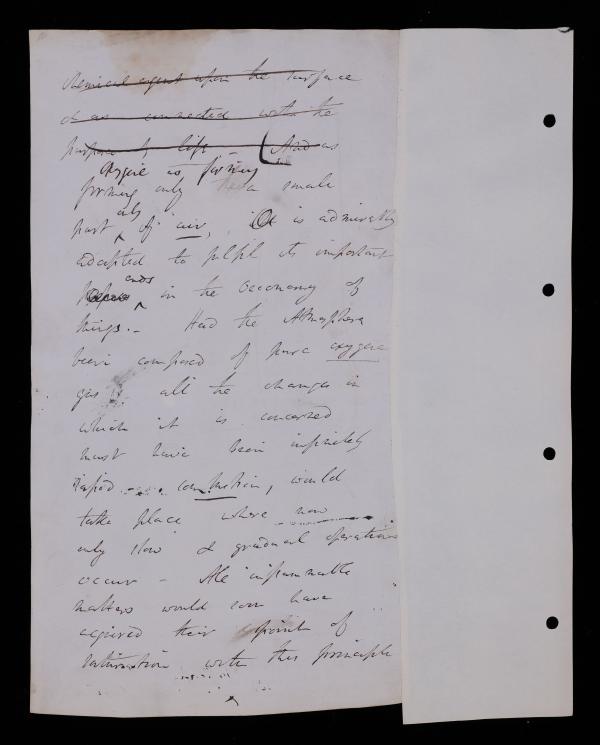 chemical agent upon the surface
& as connected with the
purpose of life – (And as
Oxygene as forming
forming only a small
part only of air, it is admirably
adapted to fulfil its important
ends in the Oeconomy of
things.– Had the Atmosphere
been composed of pure oxygene
gas all the changes in
which it is concerned
must have been infinitely
rapid combustion, would
take place where now
only slow & gradual operations
occur – All inflammable
matters would soon have
acquired their point of
saturation with this principle